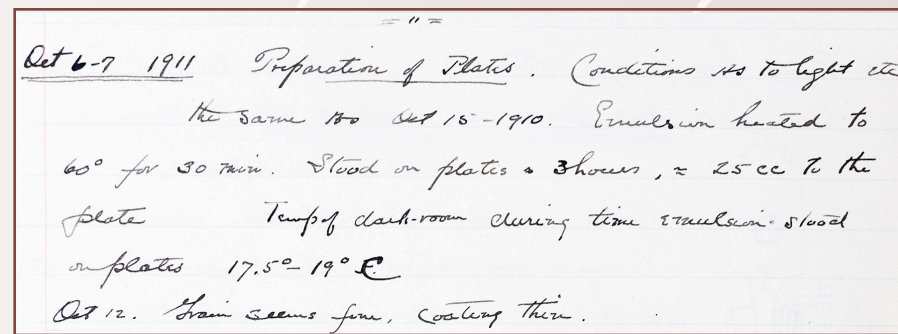 = " =
Oct 6-7 1911 Preparation of Plates. Conditions as to light etc
the same as Oct 15-1910. Emulsion heated to
60° for 30 min. Stood on plates 3 hours, = 25 cc to the
plate Temp of dark-room during time emulsion stood
on plates 17.5°-19° C.
Oct 12. Grain seems fine, coating thin.